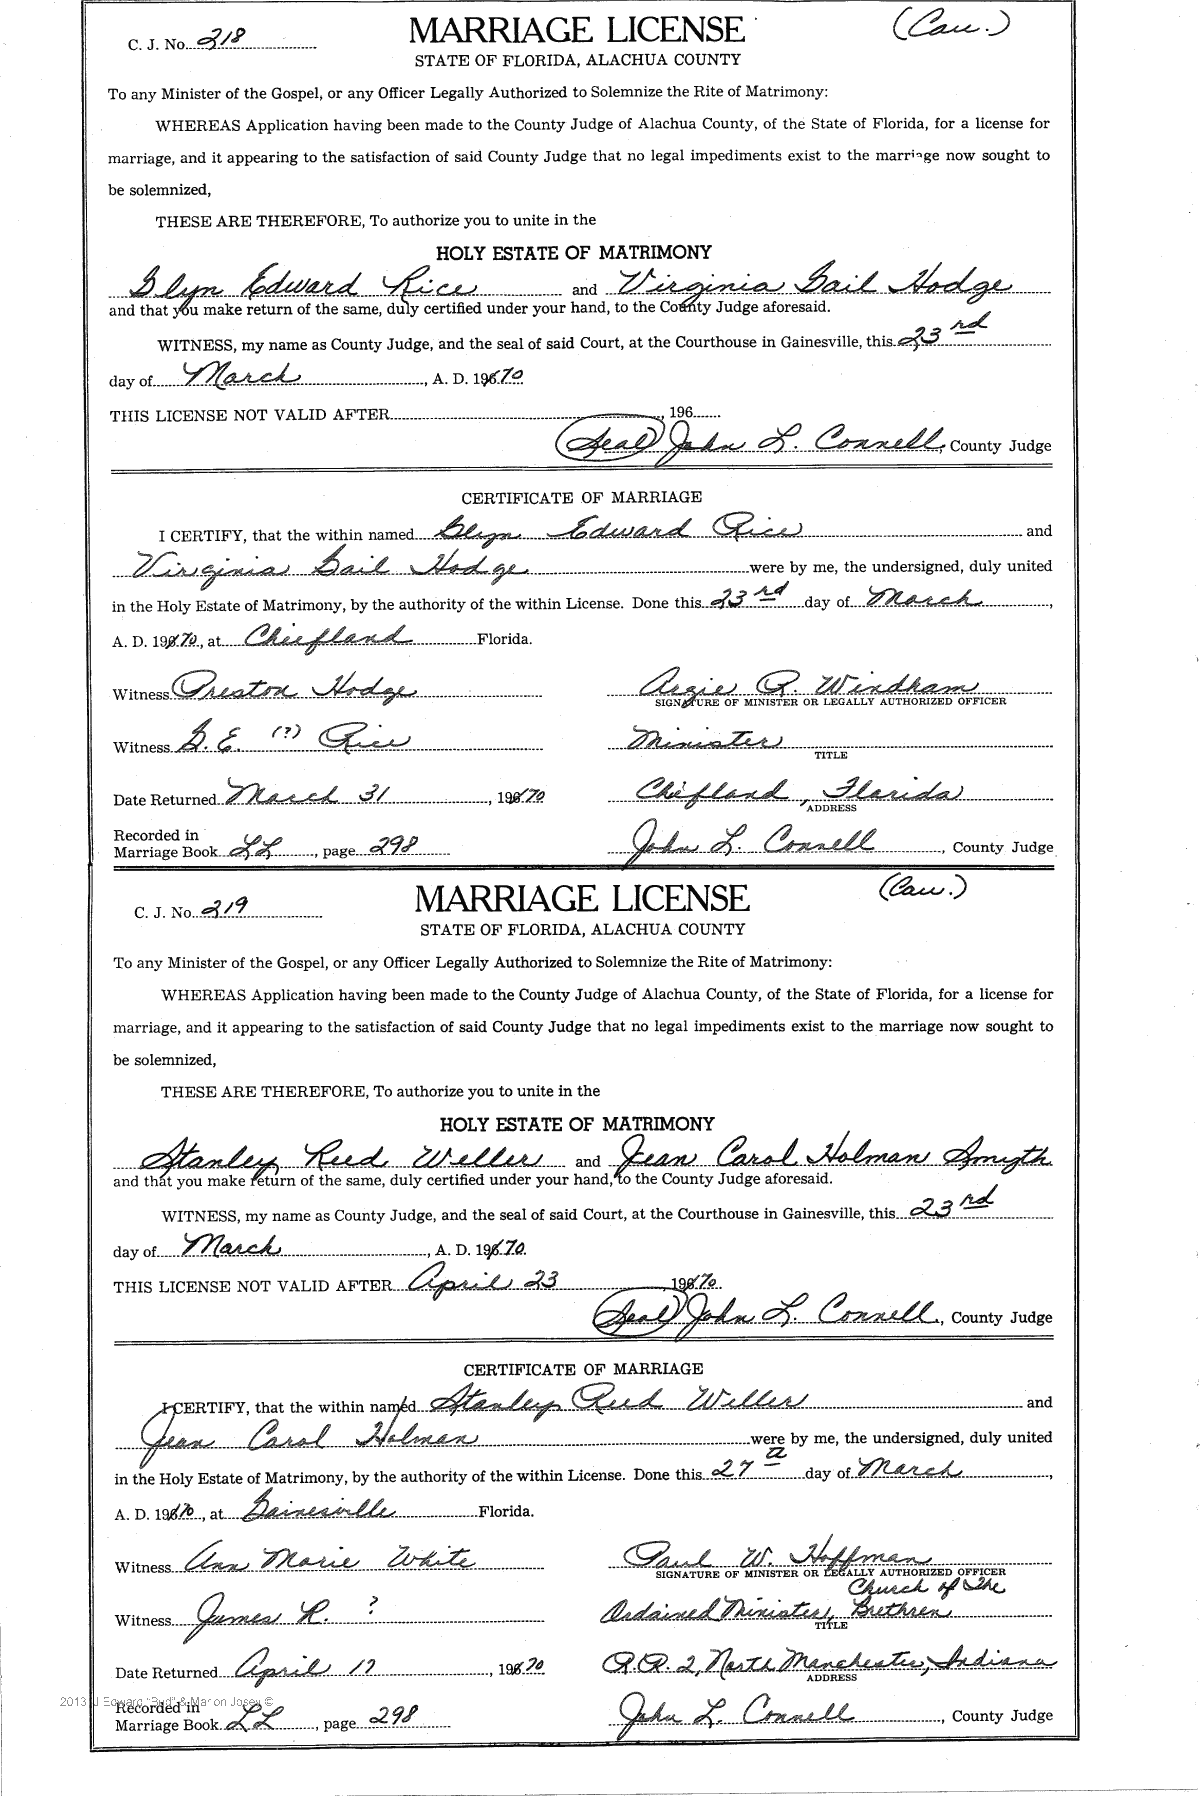 C. J. No. 218
MARRIAGE LICENSE
(Cau.)
STATE OF FLORIDA, ALACHUA COUNTY
To any Minister of the Gospel, or any Officer Legally Authorized to Solemnize the Rite of Matrimony:
WHEREAS Application having been made to the County Judge of Alachua County, of the State of Florida, for a license for
marriage, and it appearing to the satisfaction of said County Judge that no legal impediments exist to the marriage now sought to
be solemnized,
THESE ARE THEREFORE, To authorize you to unite in the
HOLY ESTATE OF MATRIMONY
Glyn Edward Rice and Virginia Gail Hodge
and that you make return of the same, duly certified under your hand, to the County Judge aforesaid.
WITNESS, my name as County Judge, and the seal of said Court, at the Courthouse in Gainesville, this 23rd
day of March, A. D. 1970
THIS LICENSE NOT VALID AFTER, 196
(Seal) John L. Connell, County Judge
CERTIFICATE OF MARRIAGE
I CERTIFY, that the within named Glyn Edward Rice and
Virginia Gail Hodge were by me, the undersigned, duly united
in the Holy Estate of Matrimony, by the authority of the within License. Done this 23rd day of March,
A. D. 1970, at Chiefland Florida.
Witness Preston Hodge
Argie R. Windham
SIGNATURE OF MINISTER OR LEGALLY AUTHORIZED OFFICER
Witness G. E. (?) Rice
Minister
TITLE
Date Returned March 31, 1970
Chiefland, Florida
ADDRESS
Recorded in
Marriage Book LL, page 298
John L. Connell, County Judge
C. J. No. 219
MARRIAGE LICENSE
(Cau.)
STATE OF FLORIDA, ALACHUA COUNTY
To any Minister of the Gospel, or any Officer Legally Authorized to Solemnize the Rite of Matrimony:
WHEREAS Application having been made to the County Judge of Alachua County, of the State of Florida, for a license for
marriage, and it appearing to the satisfaction of said County Judge that no legal impediments exist to the marriage now sought to
be solemnized,
THESE ARE THEREFORE, To authorize you to unite in the
HOLY ESTATE OF MATRIMONY
Stanley Reed Weller and Jean Carol Holman Smyth
and that you make return of the same, duly certified under your hand, to the County Judge aforesaid.
WITNESS, my name as County Judge, and the seal of said Court, at the Courthouse in Gainesville, this 23rd
day of March, A. D. 1970.
THIS LICENSE NOT VALID AFTER April 23 1970
(Seal) John L. Connell, County Judge
CERTIFICATE OF MARRIAGE
I CERTIFY, that the within named Stanley Reed Weller and
Jean Carol Holman were by me, the undersigned, duly united
in the Holy Estate of Matrimony, by the authority of the within License. Done this 27 day of March,
A. D. 1970, at Gainesville Florida.
Witness Ann Marie White
Paul W. Hoffman
SIGNATURE OF MINISTER OR LEGALLY AUTHORIZED OFFICER
Church of The
Witness James R. ?
Ordained Minister, Brethren
TITLE
Date Returned April 17, 1970
R.R. 2, North Manchester, Indiana
ADDRESS
2013 J Edward "Bud" & Marion Josey ©
Recorded in
Marriage Book LL, page 298
John L. Connell, County Judge